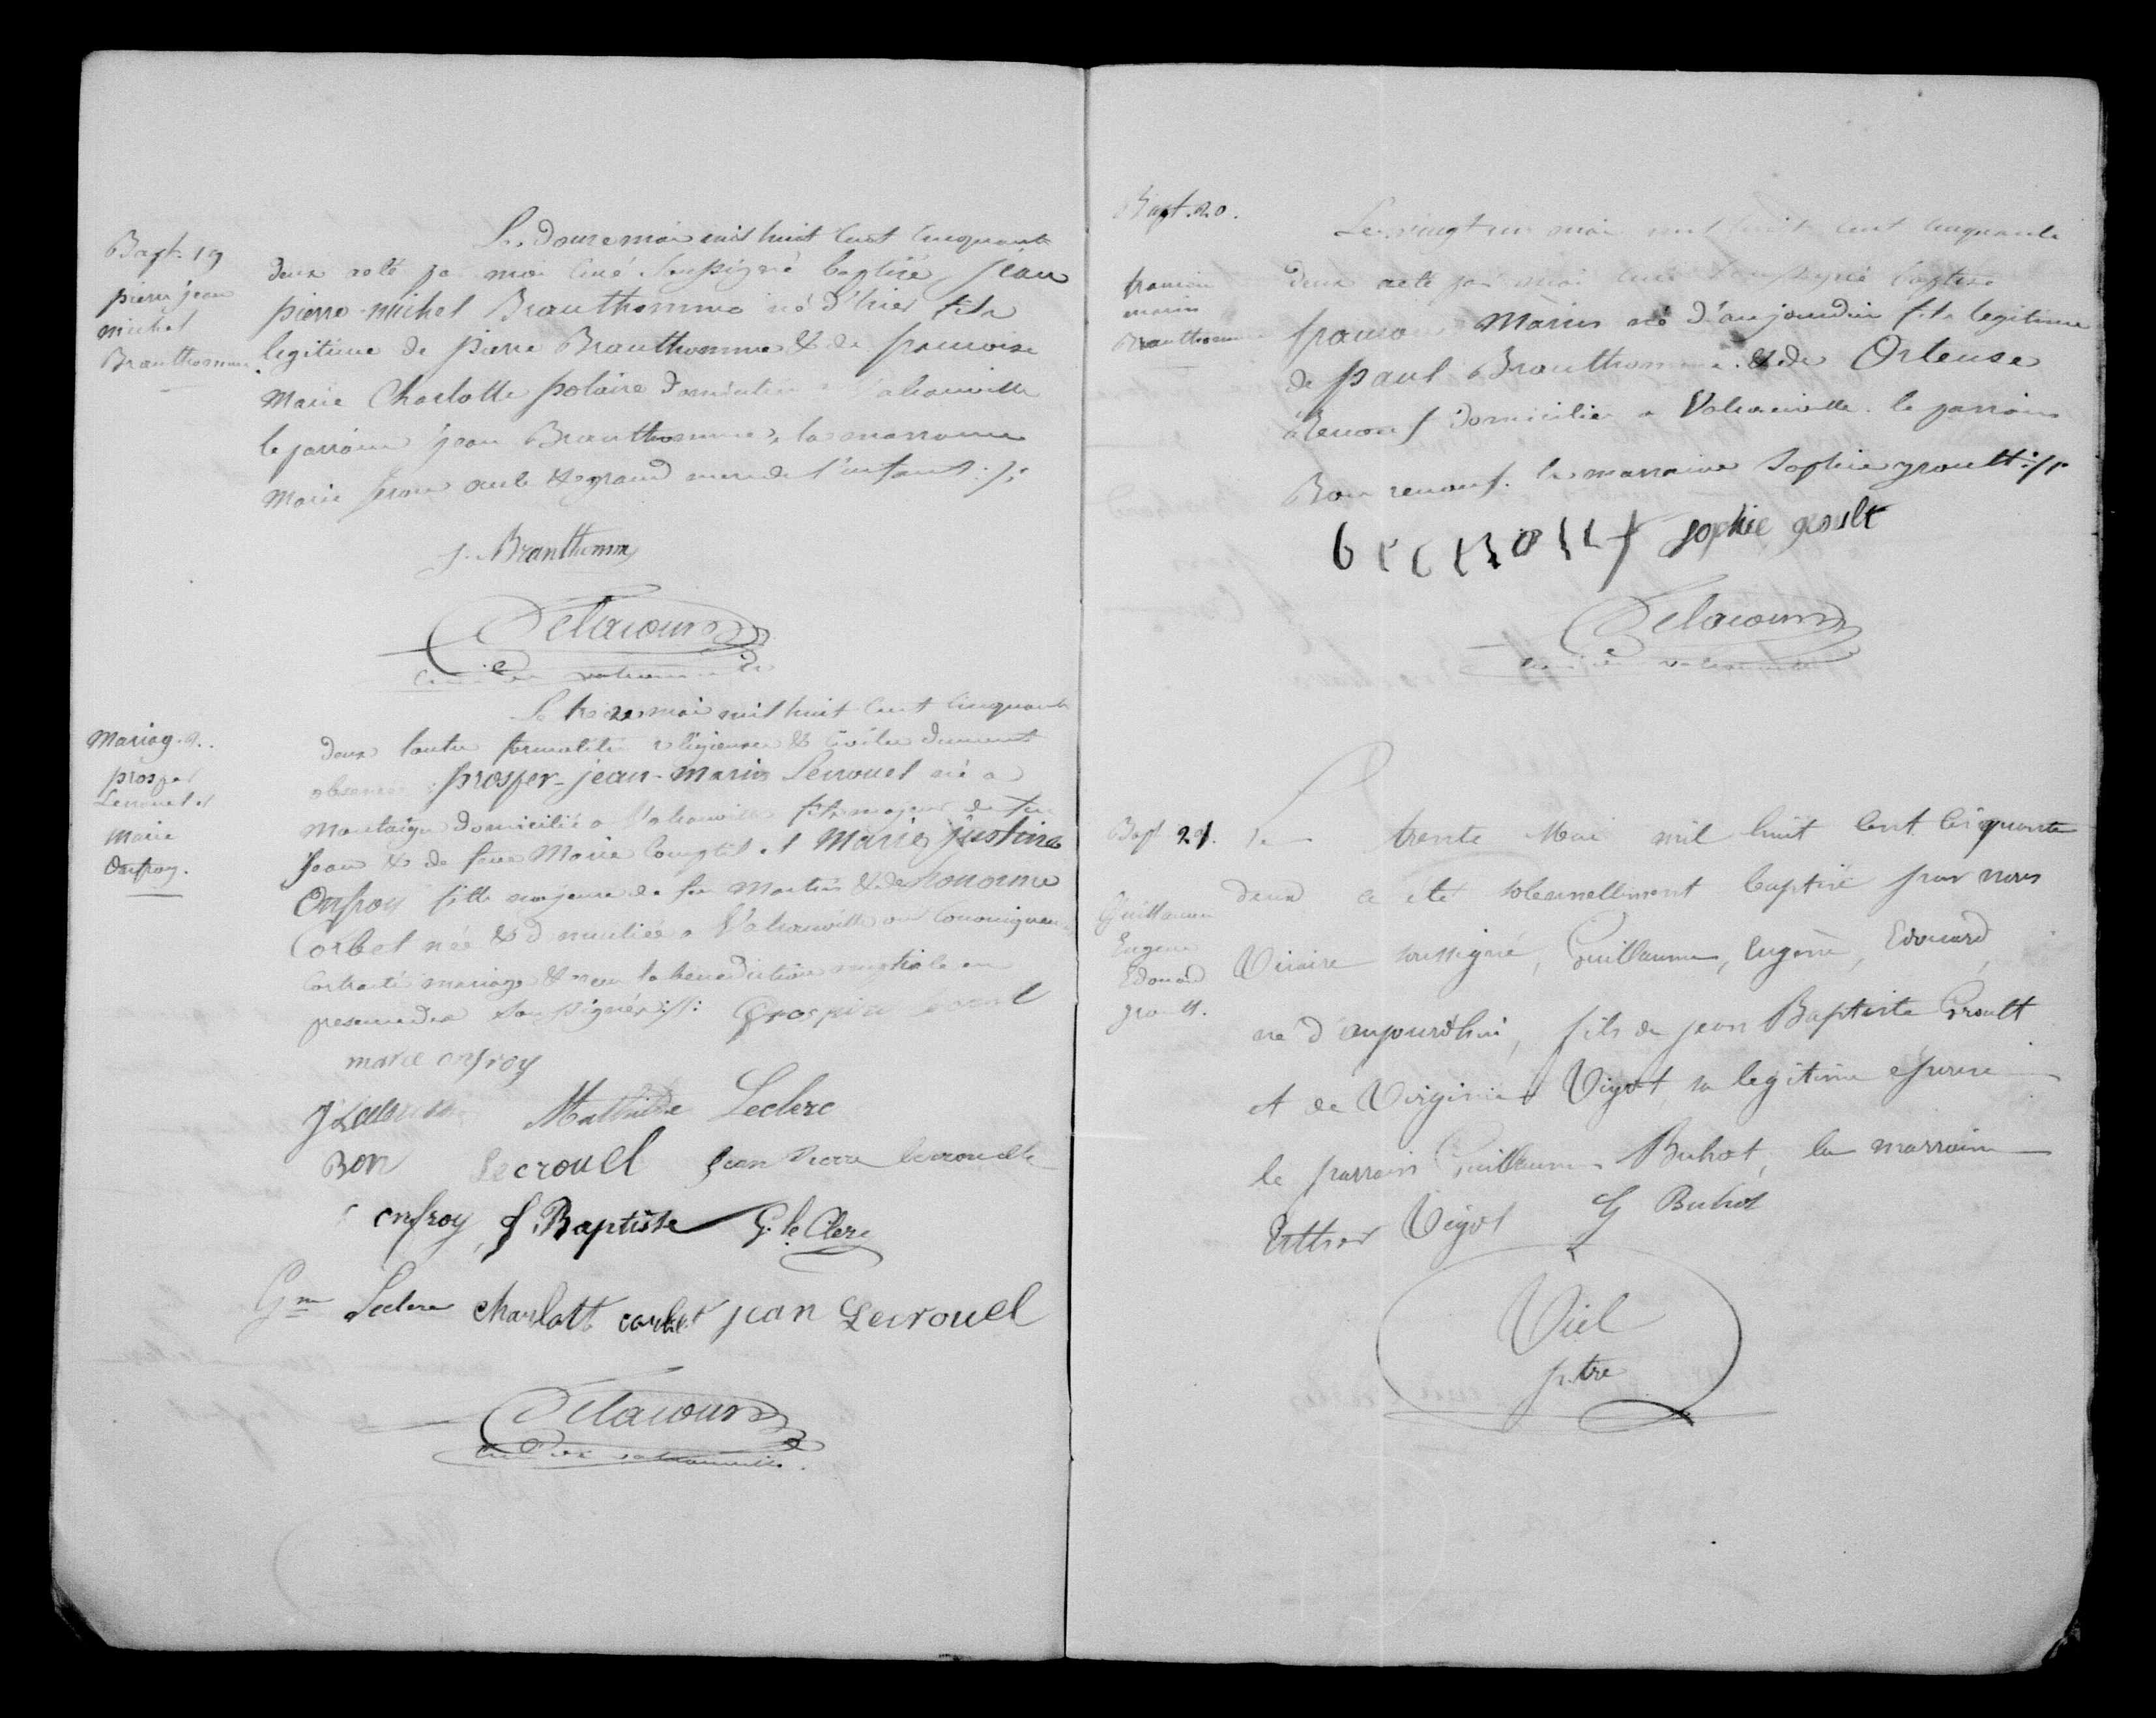 Bapt. 19
pierre jean
michel
Branthomme
Le Douze mai mil huit cent cinquante
deux a été par moi curé soussigné baptisé jean
pierre-michel Branthomme né d'hier fils
legitime de pierre Branthomme & de francoise
Marie Charlotte polaire Domiciliés a
le parrain jean Branthomme, la marraine
Marie aeule & grand mere de l'enfant ./.
j. Branthomme
Delacour
curé de
Mariag. 9.
prosper
Lecrouel et
Marie
Onfroy.
Le treize mai mil huit cent cinquante
Deux toutes formalités religieuses & civiles dument
observées prosper-jean-marin Lecrouel né a
Montaigu Domicilié a fils majeur de feu
jean & de feue Marie et Marie justine
Onfroy fille majeure de feu Martin & de honorine
Corbet née & Domiciliée a ont
Contracté mariage & recu la benediction nuptiale en
presence des soussignés ./.
marie onfroy
Mathilde Leclerc
Bon Lecrouel jean Pierre
onfroy, J. Baptiste G. le Clerc
Gme Leclerc charlotte corbet jean Lecrouel
Delacour
curé de
Bapt. 20.
marin
Branthomme
Le vingt un mai mil huit cent cinquante
deux a été par moi curé soussigné baptisé
Marin né d'aujourd'hui fils legitime
de paul Branthomme & de Ortense
Renouf Domiciliés a le parrain
Bon renouf. la marraine Sophie groult ./.
sophie groult
Delacour
curé de
Bapt 21.
Guillaume
Eugene
Edouard
groult.
Le trente Mai mil huit cent cinquante
deux a été solennellement baptisé par nous
Vicaire soussigné, Guillaume, Eugène, Edouard,
né d'aujourd'hui, fils de jean Baptiste Groult
et de Virginie Vigot, sa legitime épouse
le parrain Guillaume Buhot, la marraine
Esther Vigot G Buhot
Viel
ptre